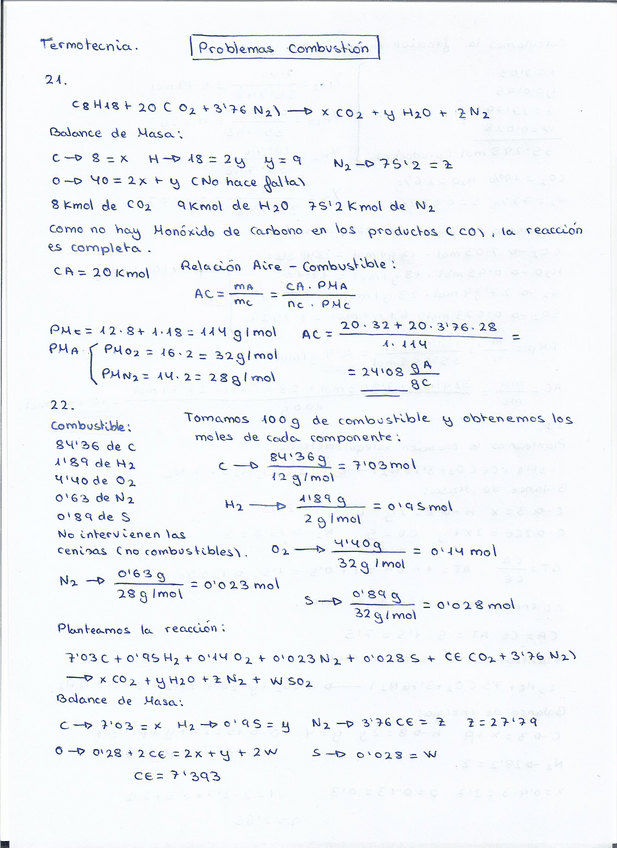 Termotecnia.
Problemas Combustión
21.
C8H18 + 20 (O2 + 3'76 N2) → x CO2 + y H2O + Z N2
Balance de Masa:
C → 8 = x H → 18 = 2y y = 9 N2 → 75'2 = Z
O → 40 = 2x + y (No hace falta)
8 Kmol de CO2 9 Kmol de H2O 75'2 Kmol de N2
Como no hay Monóxido de Carbono en los productos (CO), la reacción
es completa.
CA = 20 Kmol Relación Aire - Combustible:
AC = mA / mc = CA · PMA / nc · PMc
PMc = 12·8 + 1·18 = 114 g/mol AC = 20·32 + 20·3'76·28 / 1·114 =
PMA { PMO2 = 16·2 = 32 g/mol
PMN2 = 14·2 = 28 g/mol
= 24'08 gA / gC
22.
Combustible:
84'36 de C
1'89 de H2
4'40 de O2
0'63 de N2
0'89 de S
No intervienen las
cenizas (no combustibles).
Tomamos 100g de combustible y obtenemos los
moles de cada componente:
C → 84'36 g / 12 g/mol = 7'03 mol
H2 → 1'89 g / 2 g/mol = 0'95 mol
O2 → 4'40 g / 32 g/mol = 0'14 mol
N2 → 0'63 g / 28 g/mol = 0'023 mol
S → 0'89 g / 32 g/mol = 0'028 mol
Planteamos la reacción:
7'03 C + 0'95 H2 + 0'14 O2 + 0'023 N2 + 0'028 S + CE (O2 + 3'76 N2)
→ x CO2 + y H2O + Z N2 + W SO2
Balance de Masa:
C → 7'03 = x H2 → 0'95 = y N2 → 3'76 CE = Z Z = 27'79
O → 0'28 + 2CE = 2x + y + 2W S → 0'028 = W
CE = 7'393